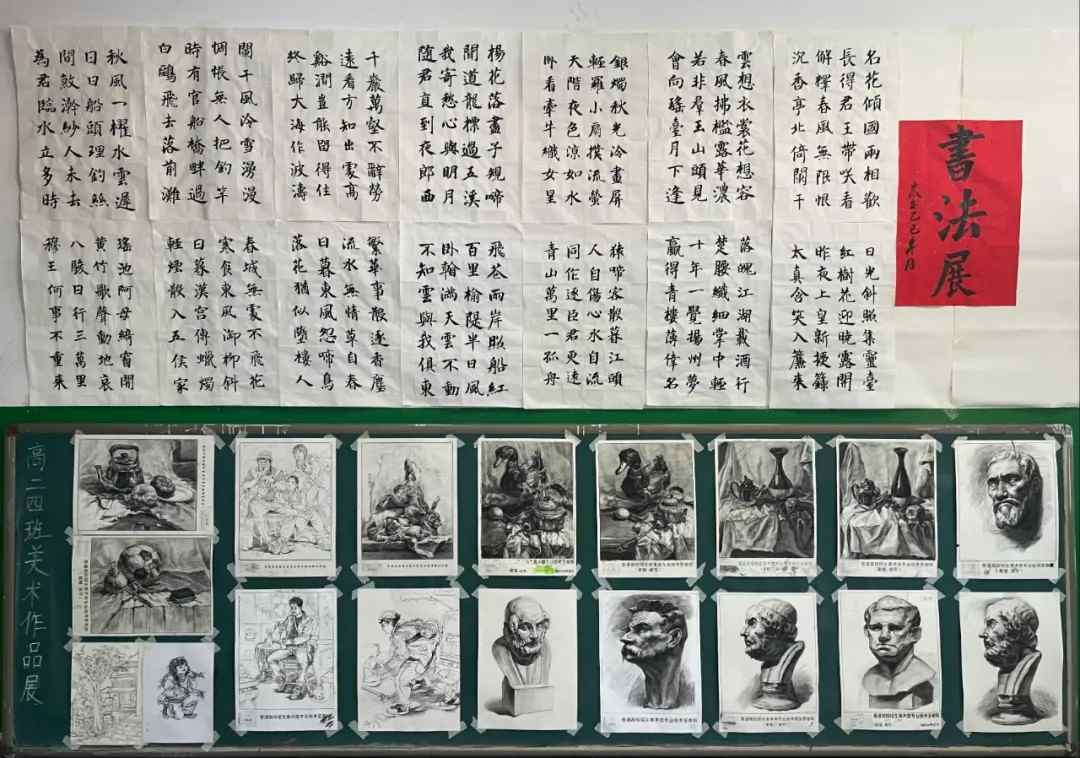 書法展
名花傾國兩相歡
長得君王帶咲看
解釋春風無限恨
沉香亭北倚闌干
雲想衣裳花想容
春風拂檻露華濃
若非羣玉山頭見
會向瑤臺月下逢
銀燭秋光冷畫屏
輕羅小扇撲流螢
天階夜色涼如水
臥看牽牛織女星
楊花落盡子規啼
聞道龍標過五溪
我寄愁心與明月
隨君直到夜郎西
千巖萬壑不辭勞
遠看方知出處高
谿澗豈能留得住
終歸大海作波濤
闌干風冷雪漫漫
惆悵無人把釣竿
時有官船橋畔過
白鷗飛去落前灘
秋風一櫂水雲遲
日日船頭理釣絲
問鮫澣紗人未去
為君臨水立多時
日光斜照集靈臺
紅樹花迎曉露開
昨夜上皇新授籙
太真含笑入簾來
落魄江湖載酒行
楚腰纖細掌中輕
十年一覺揚州夢
贏得青樓薄倖名
猿啼客散暮江頭
人自傷心水自流
同作逐臣君更遠
青山萬里一孤舟
飛花兩岸照船紅
百里榆隄半日風
臥看滿天雲不動
不知雲與我俱東
繁華事散逐香塵
流水無情草自春
日暮東風怨啼鳥
落花猶似墜樓人
春城無處不飛花
寒食東風御柳斜
日暮漢宮傳蠟燭
輕煙散入五侯家
瑤池阿母綺窗開
黃竹歌聲動地哀
八駿日行三萬里
穆王何事不重來
高二四班美术作品展